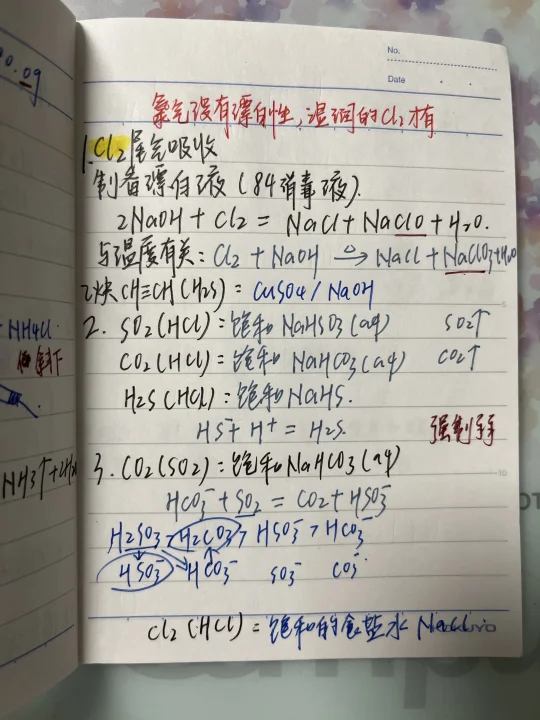 00.0g
NH4Cl
NH3↑+2H2
No.
Date
氯气没有漂白性,湿润的Cl2才有
1.Cl2尾气吸收
制备漂白液(84消毒液).
2NaOH + Cl2 = NaCl + NaClO + H2O.
与温度有关: Cl2 + NaOH △→ NaCl + NaClO3 + H2O
乙炔 CH≡CH (H2S) = CuSO4 / NaOH
2. SO2(HCl):饱和 NaHSO3(aq) SO2↑
CO2(HCl):饱和 NaHCO3(aq) CO2↑
H2S(HCl):饱和NaHS.
HS⁻ + H⁺ = H2S. 强制弱
3. CO2(SO2):饱和NaHCO3(aq)
HCO3⁻ + SO2 = CO2 + HSO3⁻
H2SO3 > H2CO3 > HSO3⁻ > HCO3⁻
HSO3⁻ HCO3⁻ SO3⁻ CO3⁻
Cl2(HCl) = 饱和的食盐水 NaCl